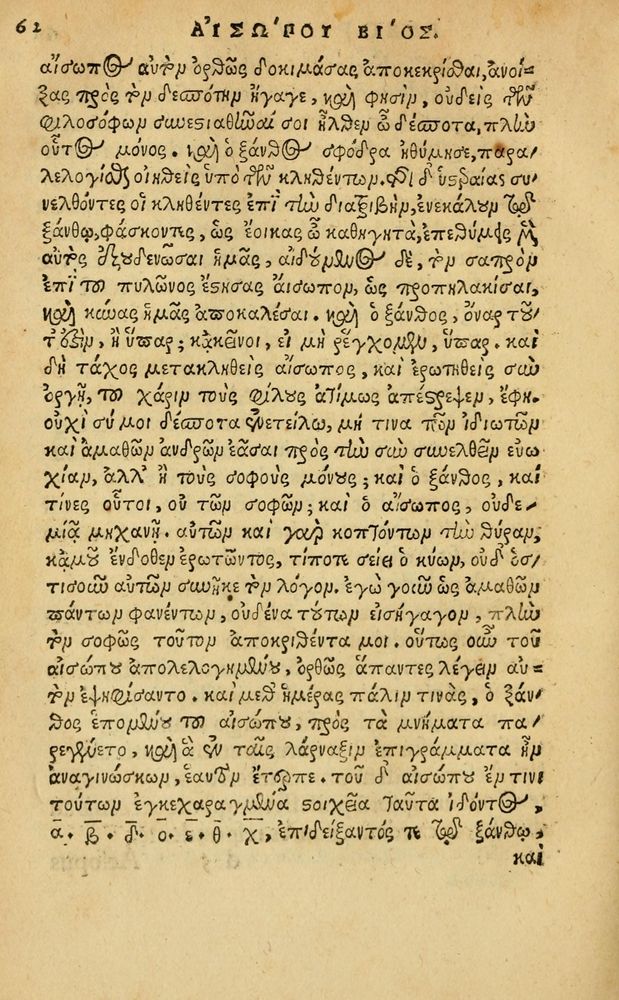 62 ΑἸΣΏΠΟΥ ΒΊΟΣ.
αἴσωπος αὐτὸν ὀρθῶς δοκιμάσας ἀποκεκρίσθαι, ἀνοί-
ξας πρὸς τὸν δεσπότην ἤγαγε, καὶ φησὶν, οὐδεὶς τῶν
φιλοσόφων συνεστιαθῆναί σοι ἦλθεν ὦ δέσποτα, πλὴν
οὗτος μόνος. καὶ ὁ ξάνθος σφόδρα ἠθύμησε, παρα-
λελογίσθαι οἰηθεὶς ὑπὸ τῶν κληθέντων. τῇ δ' ὑστεραίας συ-
νελθόντες οἱ κληθέντες ἐπὶ τὴν διατριβὴν, ἐνεκάλουν τῷ
ξάνθῳ, φάσκοντες, ὡς ἔοικας ὦ καθηγητὰ, ἐπεθύμεις μὲν
αὐτὸς ἐξουδενῶσαι ἡμᾶς, αἰδούμενος δὲ, τὸν σαπρὸν
ἐπὶ τοῦ πυλῶνος ἔστησας αἴσωπον, ὡς προπηλακίσαι,
καὶ κύνας ἡμᾶς ἀποκαλέσαι. καὶ ὁ ξάνθος, ὄναρ τοῦ-
τ' ἐστὶν, ἢ ὕπαρ; κἀκεῖνοι, εἰ μὴ ῥέγχομεν, ὕπαρ. καὶ
δὴ τάχος μετακληθεὶς αἴσωπος, καὶ ἐρωτηθεὶς σὺν
ὀργῇ, τοῦ χάριν τοὺς φίλους ἀτίμως ἀπέστρεψεν, ἔφη.
οὐχὶ σύ μοι δέσποτα ἐνετείλω, μή τινα τῶν ἰδιωτῶν
καὶ ἀμαθῶν ἀνδρῶν ἐᾶσαι πρὸς τὴν σὴν συνελθεῖν εὐω
χίαν, ἀλλ' ἢ τοὺς σοφοὺς μόνους; καὶ ὁ ξάνθος, καὶ
τίνες οὗτοι, οὐ τῶν σοφῶν; καὶ ὁ αἴσωπος, οὐδε-
μιᾷ μηχανῇ. αὐτῶν καὶ γὰρ κοπτόντων τὴν θύραν,
κἀμοῦ ἔνδοθεν ἐρωτῶντος, τίποτε σείει ὁ κύων, οὐδ' ὅσ-
τισοῦν αὐτῶν συνῆκε τὸν λόγον. ἐγὼ γοῦν ὡς ἀμαθῶν
πάντων φανέντων, οὐδένα τούτων εἰσήγαγον, πλὴν
τὸν σοφῶς τοῦτον ἀποκριθέντα μοι. οὕτως οὖν τοῦ
αἰσώπου ἀπολελογημένου, ὀρθῶς ἅπαντες λέγειν αὐ-
τὸν ἐψηφίσαντο. καὶ μεθ' ἡμέρας πάλιν τινὰς, ὁ ξάν-
θος ἑπομένου τοῦ αἰσώπου, πρὸς τὰ μνήματα πα-
ρεγένετο, καὶ ἃ ἐν ταῖς λάρναξιν ἐπιγράμματα ἦν
ἀναγινώσκων, ἑαυτὸν ἔτερπε. τοῦ δ' αἰσώπου ἔν τινι
τούτων ἐγκεχαραγμένα στοιχεῖα ταῦτα ἰδόντος,
α. β. δ. ο. ε. θ. χ, ἐπιδείξαντός τε τῷ ξάνθῳ,
καὶ